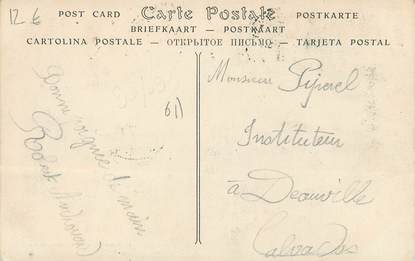 12 €
POST CARD Carte Postale POSTKARTE
BRIEFKAART — POSTKAART
CARTOLINA POSTALE — ОТКРЫТОЕ ПИСЬМО — TARJETA POSTAL
61)
Bonne poignée de main
Robert
Monsieur Piperel
Instituteur
à Deauville
Calvados